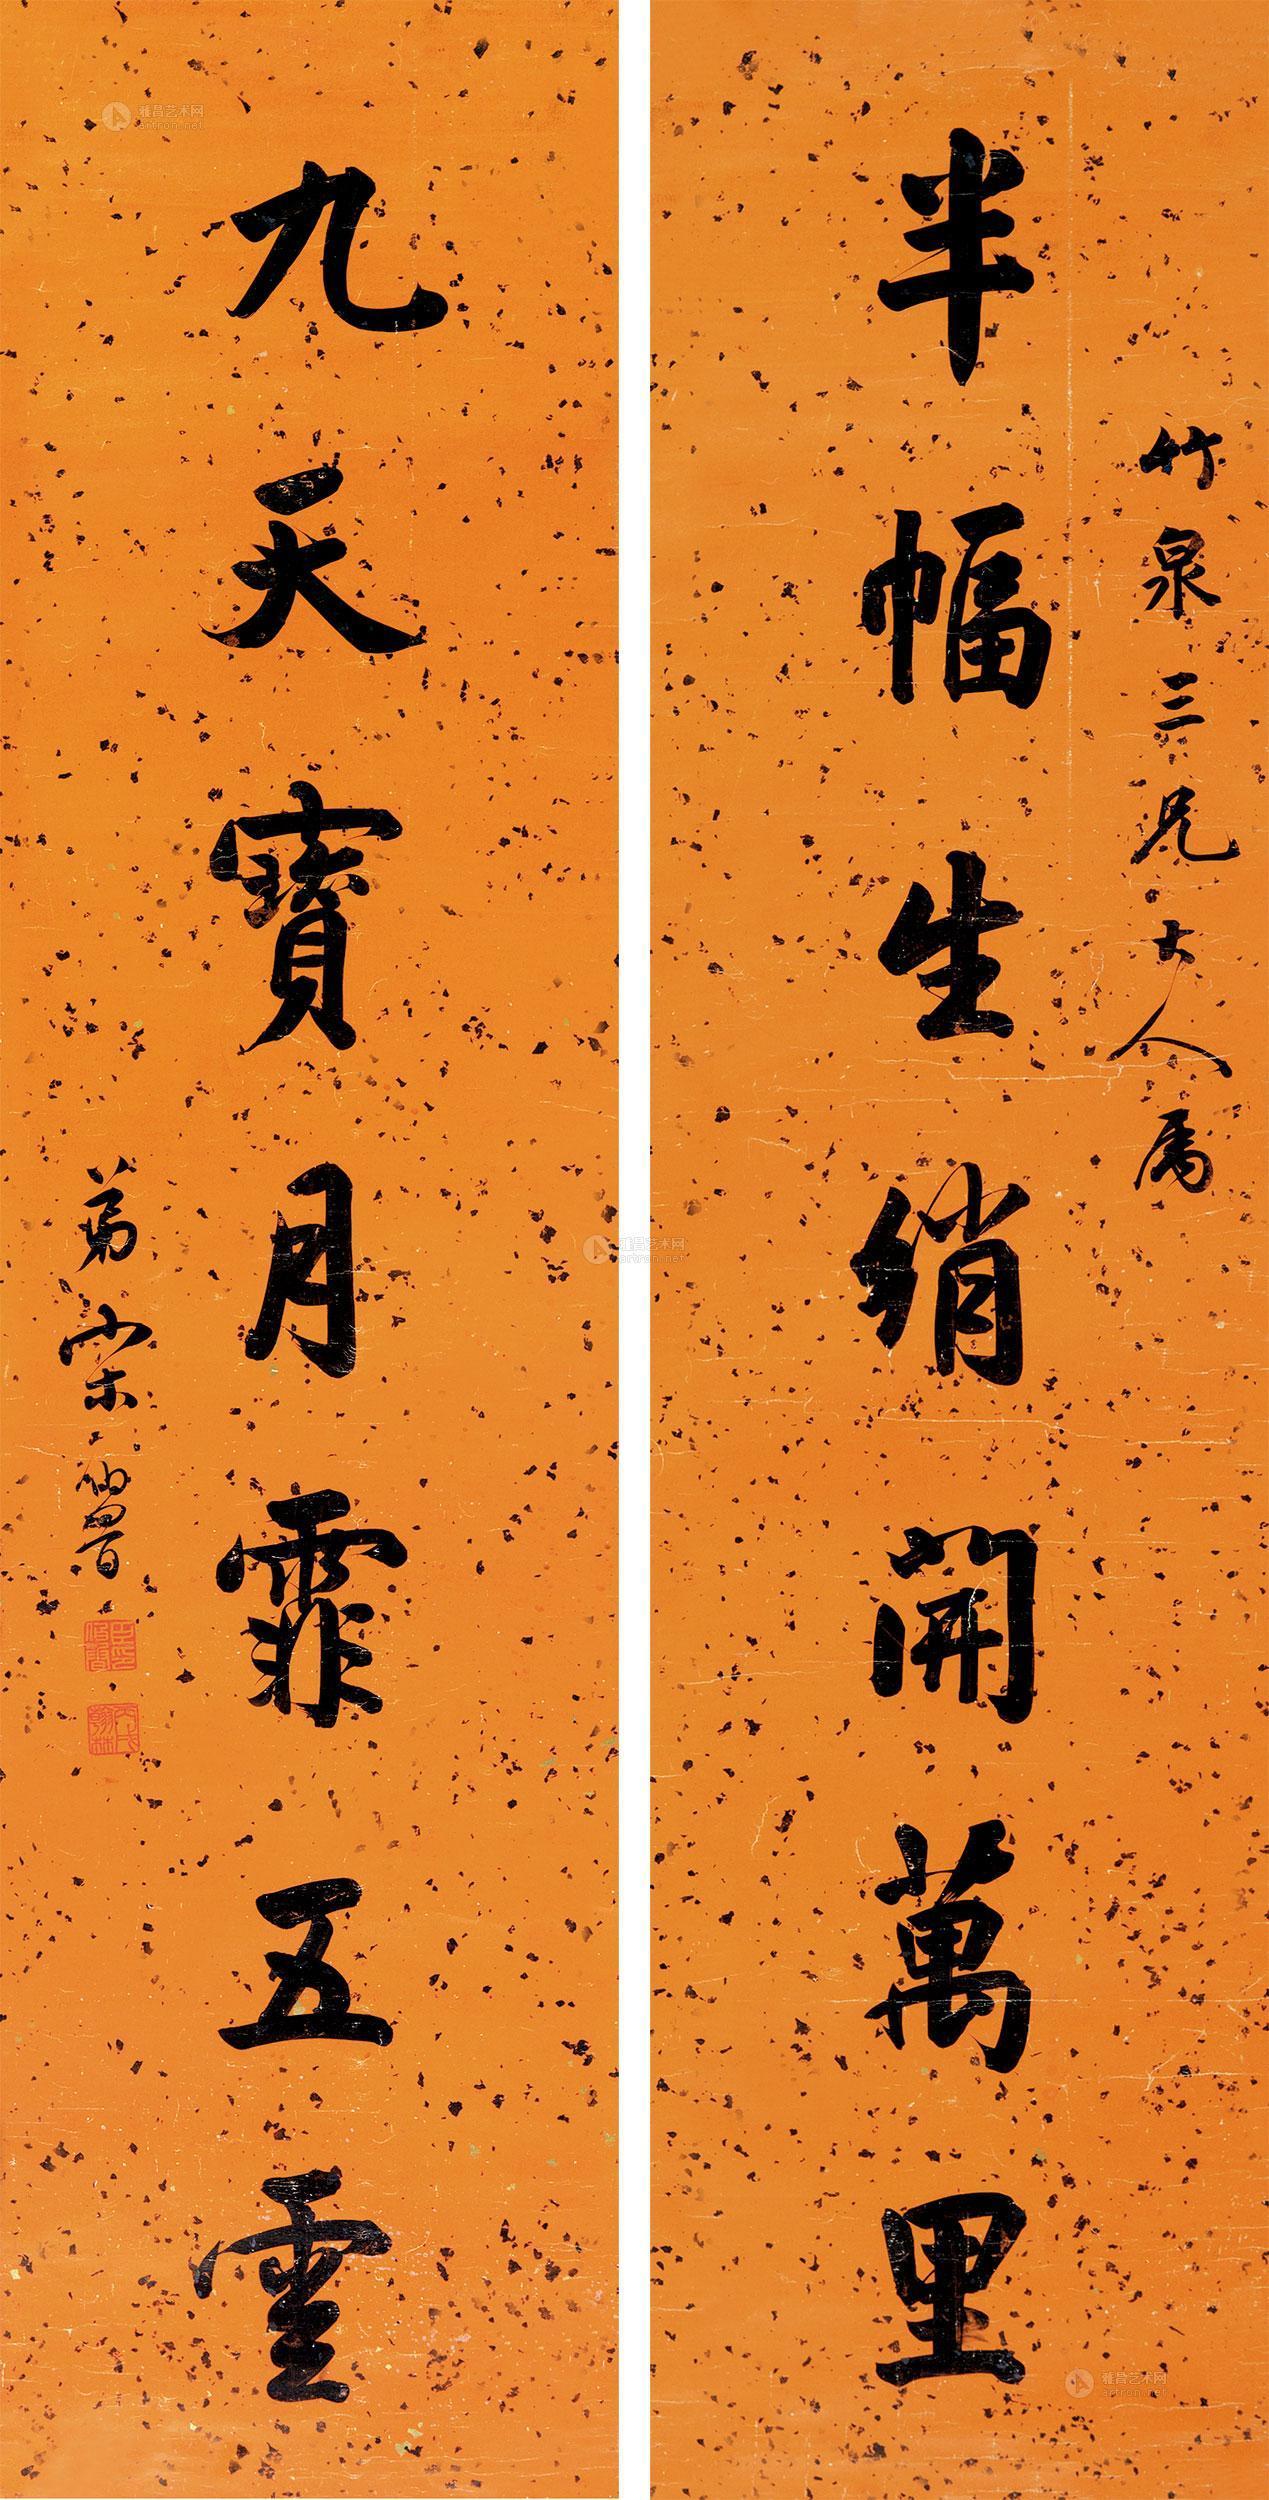 竹泉三兄大人属
半幅生綃開萬里
九天寶月霏五雲
弟宋伯魯
丙戌翰林
雅昌艺术网
artron.net
雅昌艺术网
artron.net
雅昌艺术网
artron.net